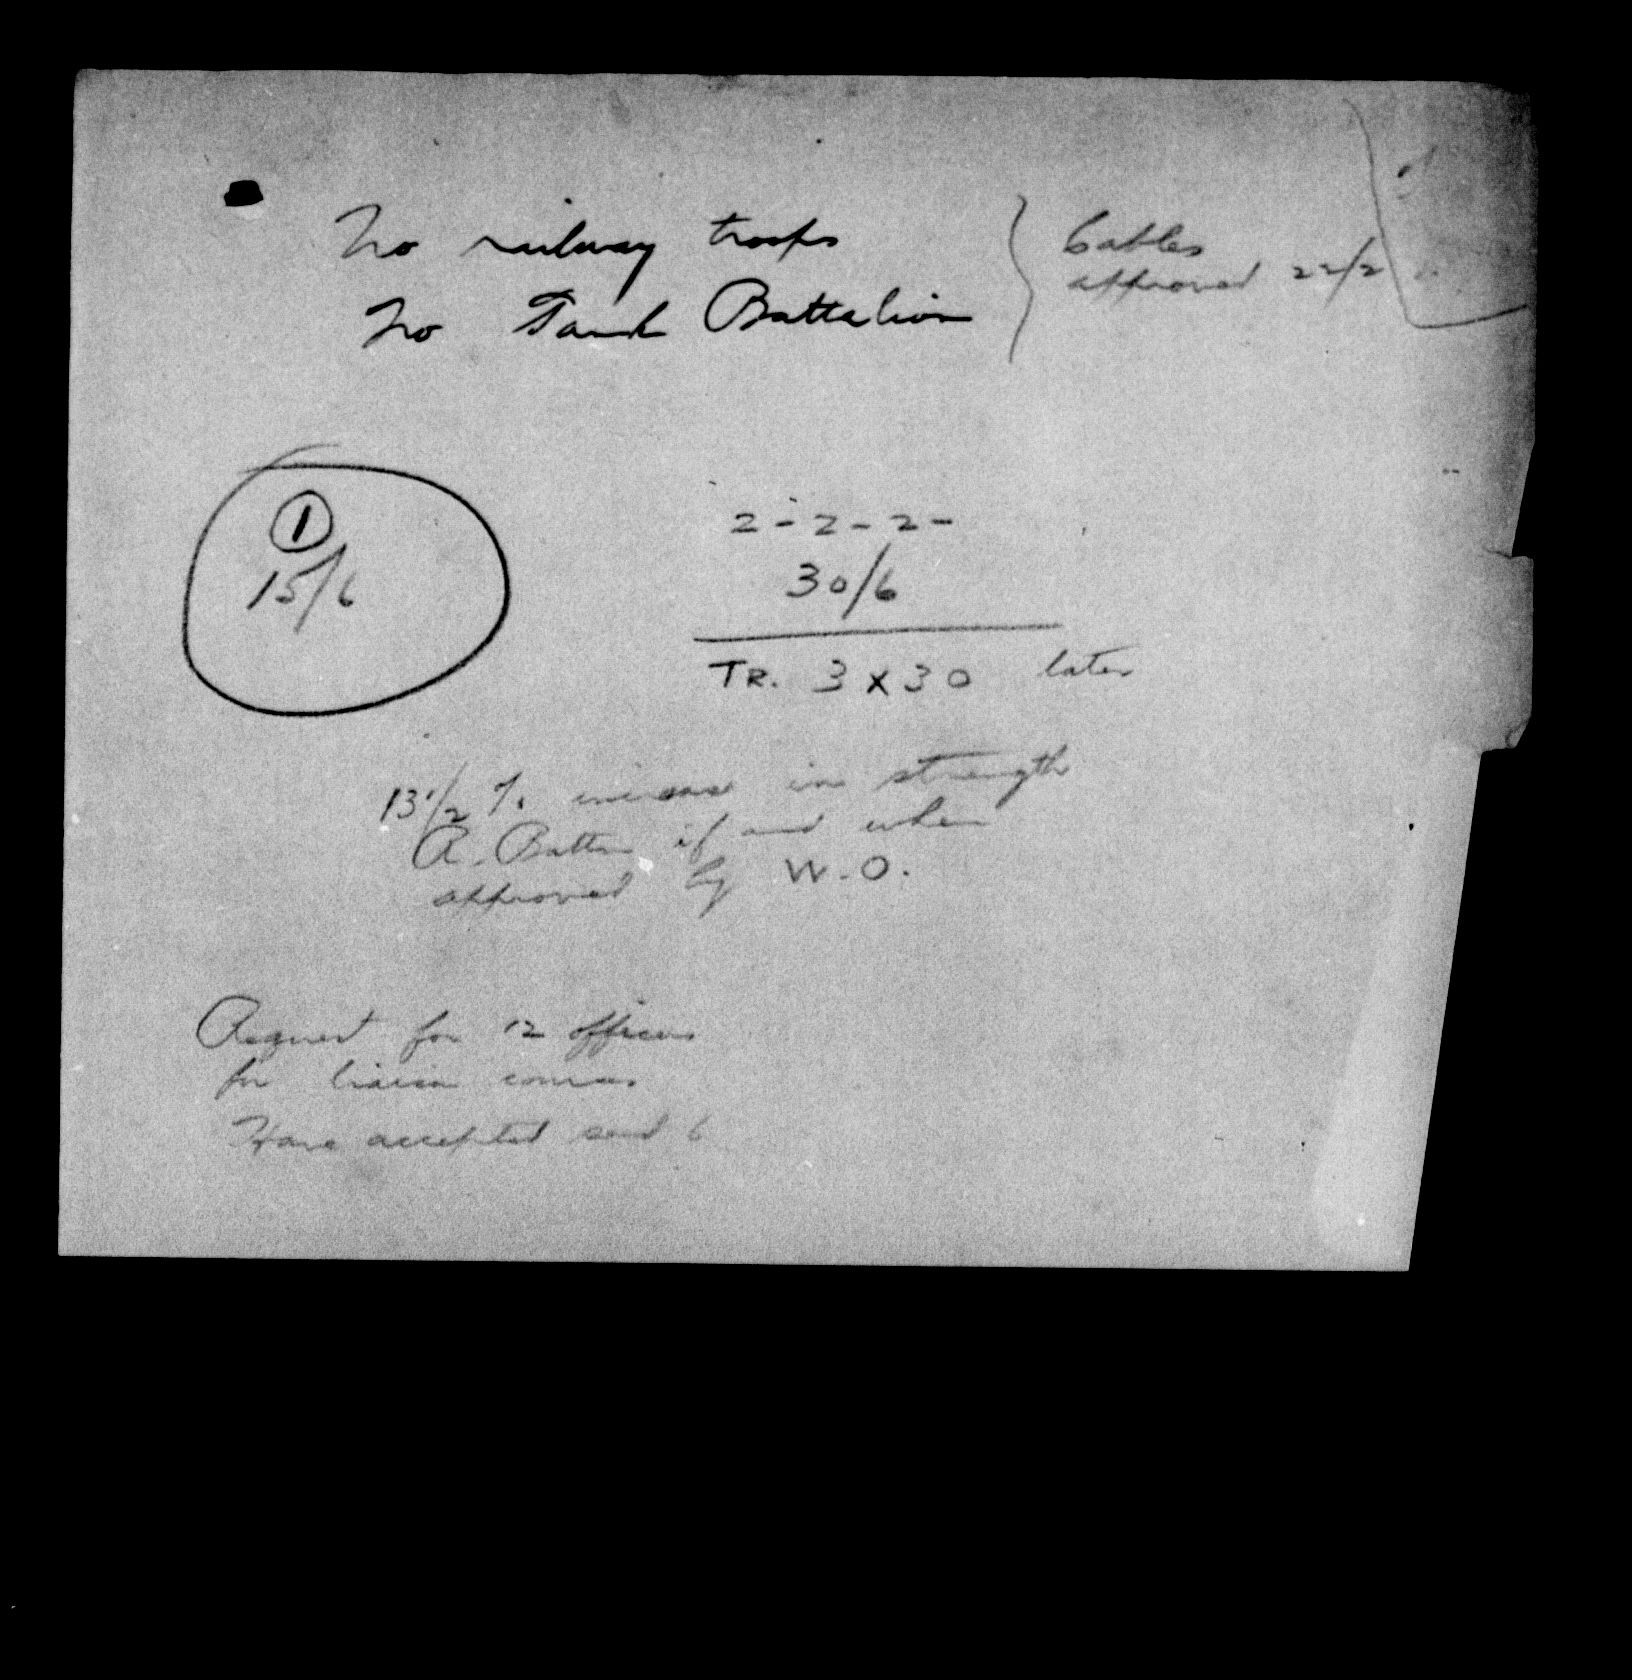 No railway troops
No Tank Battalion
Cables
approved 22/2
1
15/6
2 - 2 - 2 -
30/6
TR. 3 x 30 later
13 1/2 % increase in strength
R. Battn if and when
approved by W.O.
Request for 12 officers
for liaison courses
Have accepted send 6